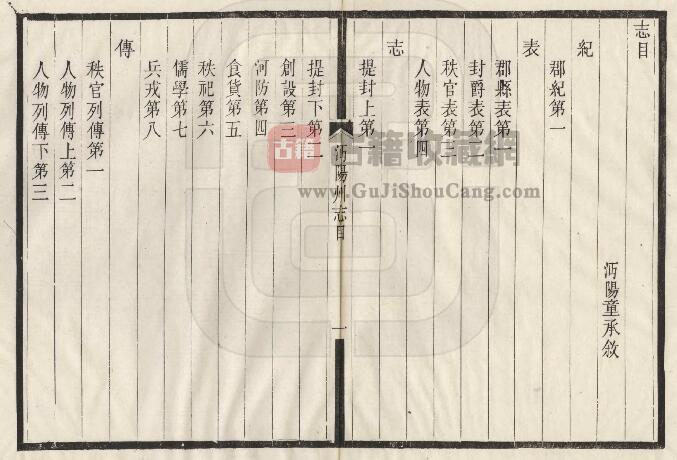 志目
沔陽童承敘
紀
郡紀第一
表
郡縣表第一
封爵表第二
秩官表第三
人物表第四
志
提封上第一
沔陽州志目
一
提封下第二
創設第三
河防第四
食貨第五
秩祀第六
儒學第七
兵戎第八
傳
秩官列傳第一
人物列傳上第二
人物列傳下第三
古籍
古籍收藏網
www.GuJiShouCang.com